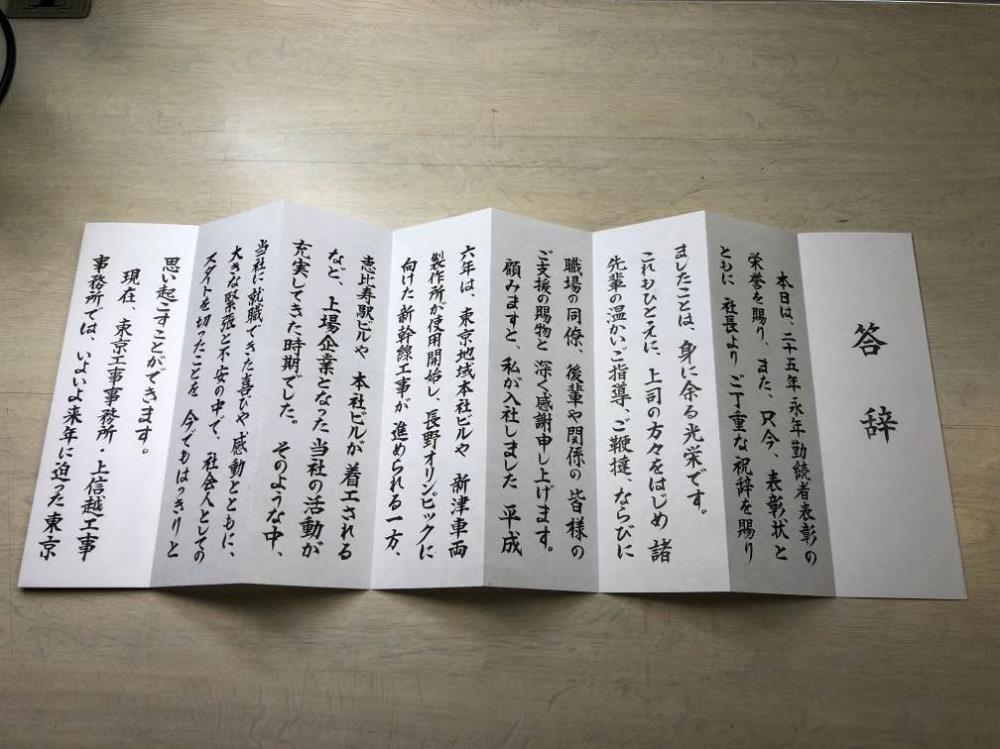 答辞
本日は、二十五年永年勤続者表彰の
栄誉を賜り、また、只今、表彰状と
ともに社長よりご丁重な祝辞を賜り
ましたことは、身に余る光栄です。
これもひとえに、上司の方々をはじめ諸
先輩の温かいご指導、ご鞭撻、ならびに
職場の同僚、後輩や関係の皆様の
ご支援の賜物と深く感謝申し上げます。
顧みますと、私が入社しました平成
六年は、東京地域本社ビルや新津車両
製作所が使用開始し、長野オリンピックに
向けた新幹線工事が進められる一方、
恵比寿駅ビルや本社ビルが着工される
など、上場企業となった当社の活動が
充実してきた時期でした。そのような中、
当社に就職できた喜びや感動とともに、
大きな緊張と不安の中で、社会人としての
スタートを切ったことを今でもはっきりと
思い起こすことができます。
現在、東京工事事務所・上信越工事
事務所では、いよいよ来年に迫った東京